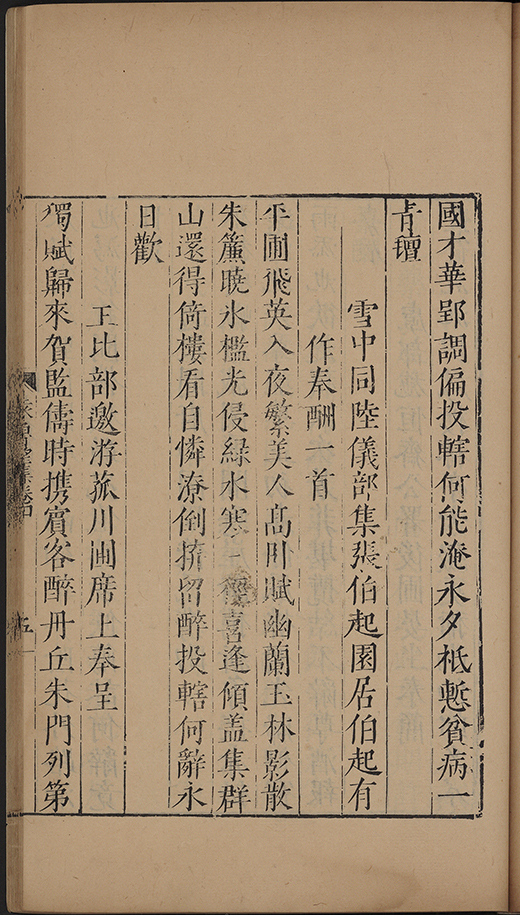 國才華郢調偏投轄何能淹永夕祗慙貧病一
青氊
雪中同陸儀部集張伯起園居伯起有
作奉酬一首
平圃飛英入夜繁美人高引賦幽蘭玉林影散
朱簾曉氷檻光侵綠水寒一徑喜逢傾盖集群
山還得倚樓看自憐潦倒擠留醉投轄何辭永
日歡
王比部邀游菰川圃席上奉呈
獨賦歸來賀監儔時携賓客醉丹丘朱門列第
五